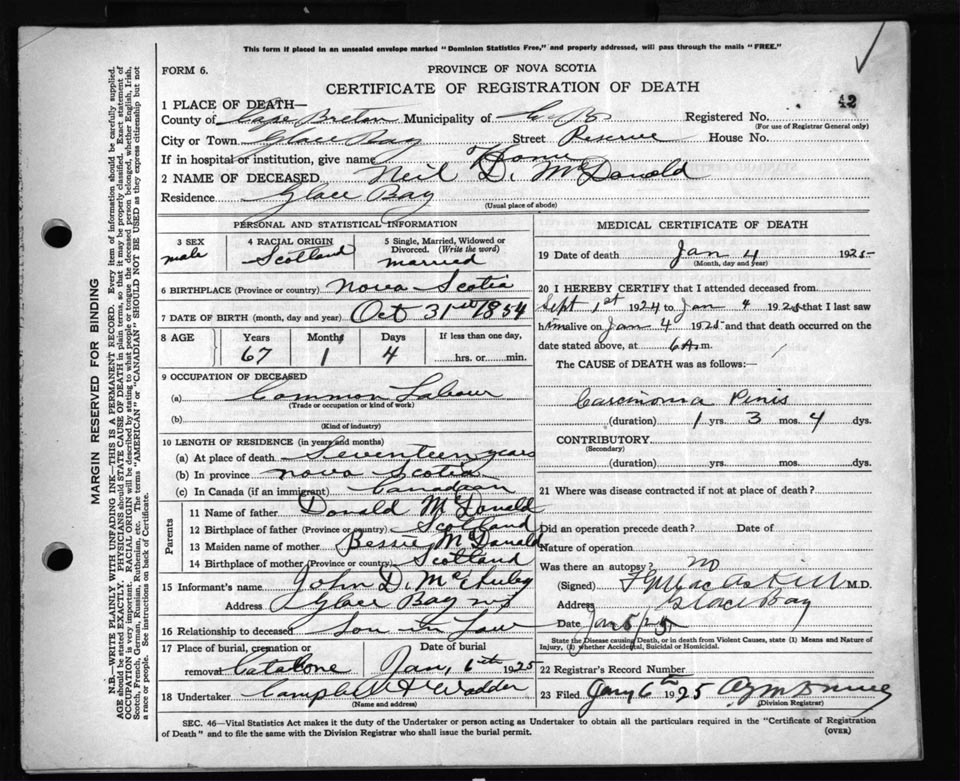 This form if placed in an unsealed envelope marked "Dominion Statistics Free," and properly addressed, will pass through the mails "FREE."
FORM 6.
PROVINCE OF NOVA SCOTIA
CERTIFICATE OF REGISTRATION OF DEATH
42
1 PLACE OF DEATH—
County of Cape Breton Municipality of C.B. Registered No.
(For use of Registrar General only)
City or Town Glace Bay Street Reserve House No.
If in hospital or institution, give name Home
2 NAME OF DECEASED Neil D. McDonald
Residence Glace Bay
(Usual place of abode)
PERSONAL AND STATISTICAL INFORMATION
3 SEX male
4 RACIAL ORIGIN Scotland
5 Single, Married, Widowed or Divorced. (Write the word) married
6 BIRTHPLACE (Province or country) Nova Scotia
7 DATE OF BIRTH (month, day and year) Oct 31st 1854
8 AGE Years 67 Months 1 Days 4 If less than one day, hrs. or min.
9 OCCUPATION OF DECEASED
(a) Common Labour
(Trade or occupation or kind of work)
(b)
(Kind of industry)
10 LENGTH OF RESIDENCE (in years and months)
(a) At place of death Seventeen years
(b) In province Nova Scotia
(c) In Canada (if an immigrant) Canadian
Parents
11 Name of father Donald McDonald
12 Birthplace of father (Province or country) Scotland
13 Maiden name of mother Bessie McDonald
14 Birthplace of mother (Province or country) Scotland
15 Informant's name John D.
Address Glace Bay NS
16 Relationship to deceased Son in Law
17 Place of burial, cremation or removal Catalone
Date of burial Jan, 6th 1925
18 Undertaker
(Name and address)
MEDICAL CERTIFICATE OF DEATH
19 Date of death Jan 4 1925
(Month, day and year)
20 I HEREBY CERTIFY that I attended deceased from
Sept 1st 1924 to Jan 4 1925 that I last saw
him alive on Jan 4 1925 and that death occurred on the
date stated above, at 6 A.m.
The CAUSE OF DEATH was as follows:—
Carcinoma Pinis
(duration) 1 yrs. 3 mos. 4 dys.
CONTRIBUTORY
(Secondary)
(duration) yrs. mos. dys.
21 Where was disease contracted if not at place of death?
Did an operation precede death? Date of
Nature of operation
Was there an autopsy? no
(Signed) MacAskill M.D.
Address Glace Bay
Date Jan 5/25
State the Disease causing Death, or in death from Violent Causes, state (1) Means and Nature of
Injury, (2) whether Accidental, Suicidal or Homicidal.
22 Registrar's Record Number
23 Filed Jany 6th 1925
(Division Registrar)
SEC. 46—Vital Statistics Act makes it the duty of the Undertaker or person acting as Undertaker to obtain all the particulars required in the "Certificate of Registration
of Death" and to file the same with the Division Registrar who shall issue the burial permit. (OVER)
MARGIN RESERVED FOR BINDING
N.B.—WRITE PLAINLY WITH UNFADING INK—THIS IS A PERMANENT RECORD. Every item of information should be carefully supplied.
AGE should be stated EXACTLY. PHYSICIANS should STATE CAUSE OF DEATH in plain terms, so that it may be properly classified. Exact statement of
OCCUPATION is very important. RACIAL ORIGIN will be described by stating to what people or tongue the deceased person belonged, whether English, Irish,
Scotch, French, German, Russian, Ruthenian, etc. The terms "AMERICAN" or "CANADIAN" SHOULD NOT BE USED as they express citizenship but not
a race or people. See instructions on back of Certificate.